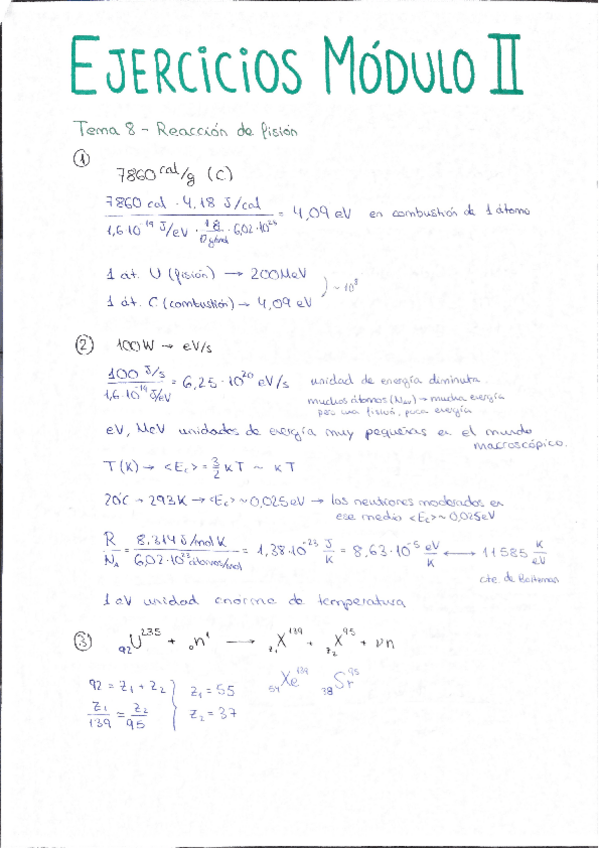 EJERCICIOS MÓDULO II
Tema 8 - Reacción de fisión
①
7860 cal/g (C)
7860 cal · 4,18 J/cal
= 4,09 eV en combustión de 1 átomo
1,6 10⁻¹⁹ J/eV · · 6,02·10²³
1 át. U (fisión) → 200 MeV
) ~ 10⁸
1 át. C (combustión) → 4,09 eV
② 100 W → eV/s
100 J/s
= 6,25 · 10²⁰ eV/s unidad de energía diminuta.
1,6·10⁻¹⁹ J/eV
muchos átomos (N_Av) → mucha energía
por una fisión, poca energía
eV, MeV unidades de energía muy pequeñas en el mundo
macroscópico.
T(K) → <E_c> = 3/2 KT ~ KT
20°C → 293K → <E_c> ~ 0,025 eV → los neutrones moderados en
ese medio <E_c> ~ 0,025 eV
R/N_A = 8,314 J/mol K / 6,02·10²³ átomos/mol = 1,38·10⁻²³ J/K = 8,63·10⁻⁵ eV/K ⟷ 11585 K/eV
cte. de Boltzman
1 eV unidad enorme de temperatura
③ ₉₂U²³⁵ + ₀n¹ → z₁X¹³⁹ + z₂X⁹⁵ + νn
92 = z₁ + z₂ } z₁ = 55 ₅₄Xe¹³⁹ ₃₈Sr⁹⁵
z₁/139 = z₂/95 } z₂ = 37